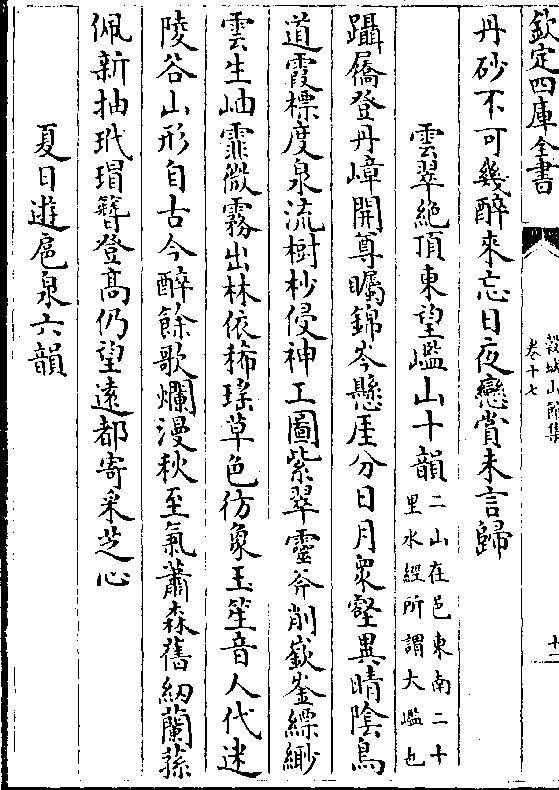 欽定四庫全書
穀城山館集
卷十七
十二
丹砂不可幾醉來忘日夜戀賞未言歸
雲翠絶頂東望㠥山十韻二山在邑東南二十里水經所謂大㠥也
躡屩登丹嶂開尊矚錦岑懸厓分日月衆壑異晴隂鳥
道霞標度泉流樹杪侵神工圖紫翠靈斧削嶔崟縹緲
雲生岫霏微霧出林依稀瑤草色彷象玉笙音人代迷
陵谷山形自古今醉餘歌爛漫秋至氣蕭森舊紉蘭蓀
佩新抽玳瑁簪登高仍望遠都寄采芝心
夏日遊扈泉六韻